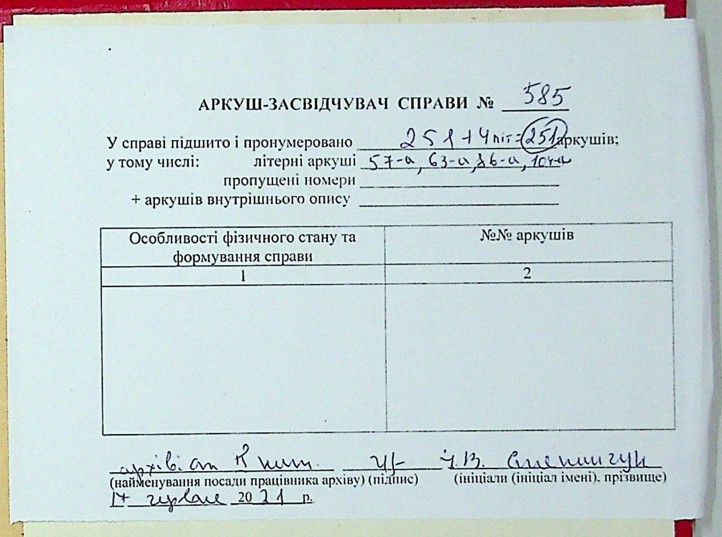 АРКУШ-ЗАСВІДЧУВАЧ СПРАВИ № 585
У справі підшито і пронумеровано 251+4літ=251 аркушів;
у тому числі: літерні аркуші 57-а, 63-а, 86-а, 104-а
пропущені номери
+ аркушів внутрішнього опису
Особливості фізичного стану та формування справи
№№ аркушів
1 2
архівіст І.В.
(найменування посади працівника архіву) (підпис) (ініціали (ініціал імені), прізвище)
червня 2021 р.